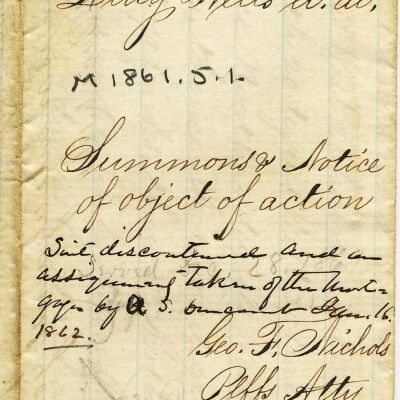 M 1861.5.1.
Summons & Notice
of object of action
Suit discontinued and an
assignment taken of the Mort-
gage by A S. Jan. 16.
1862.
Geo. F. Nichols
Plffs Atty